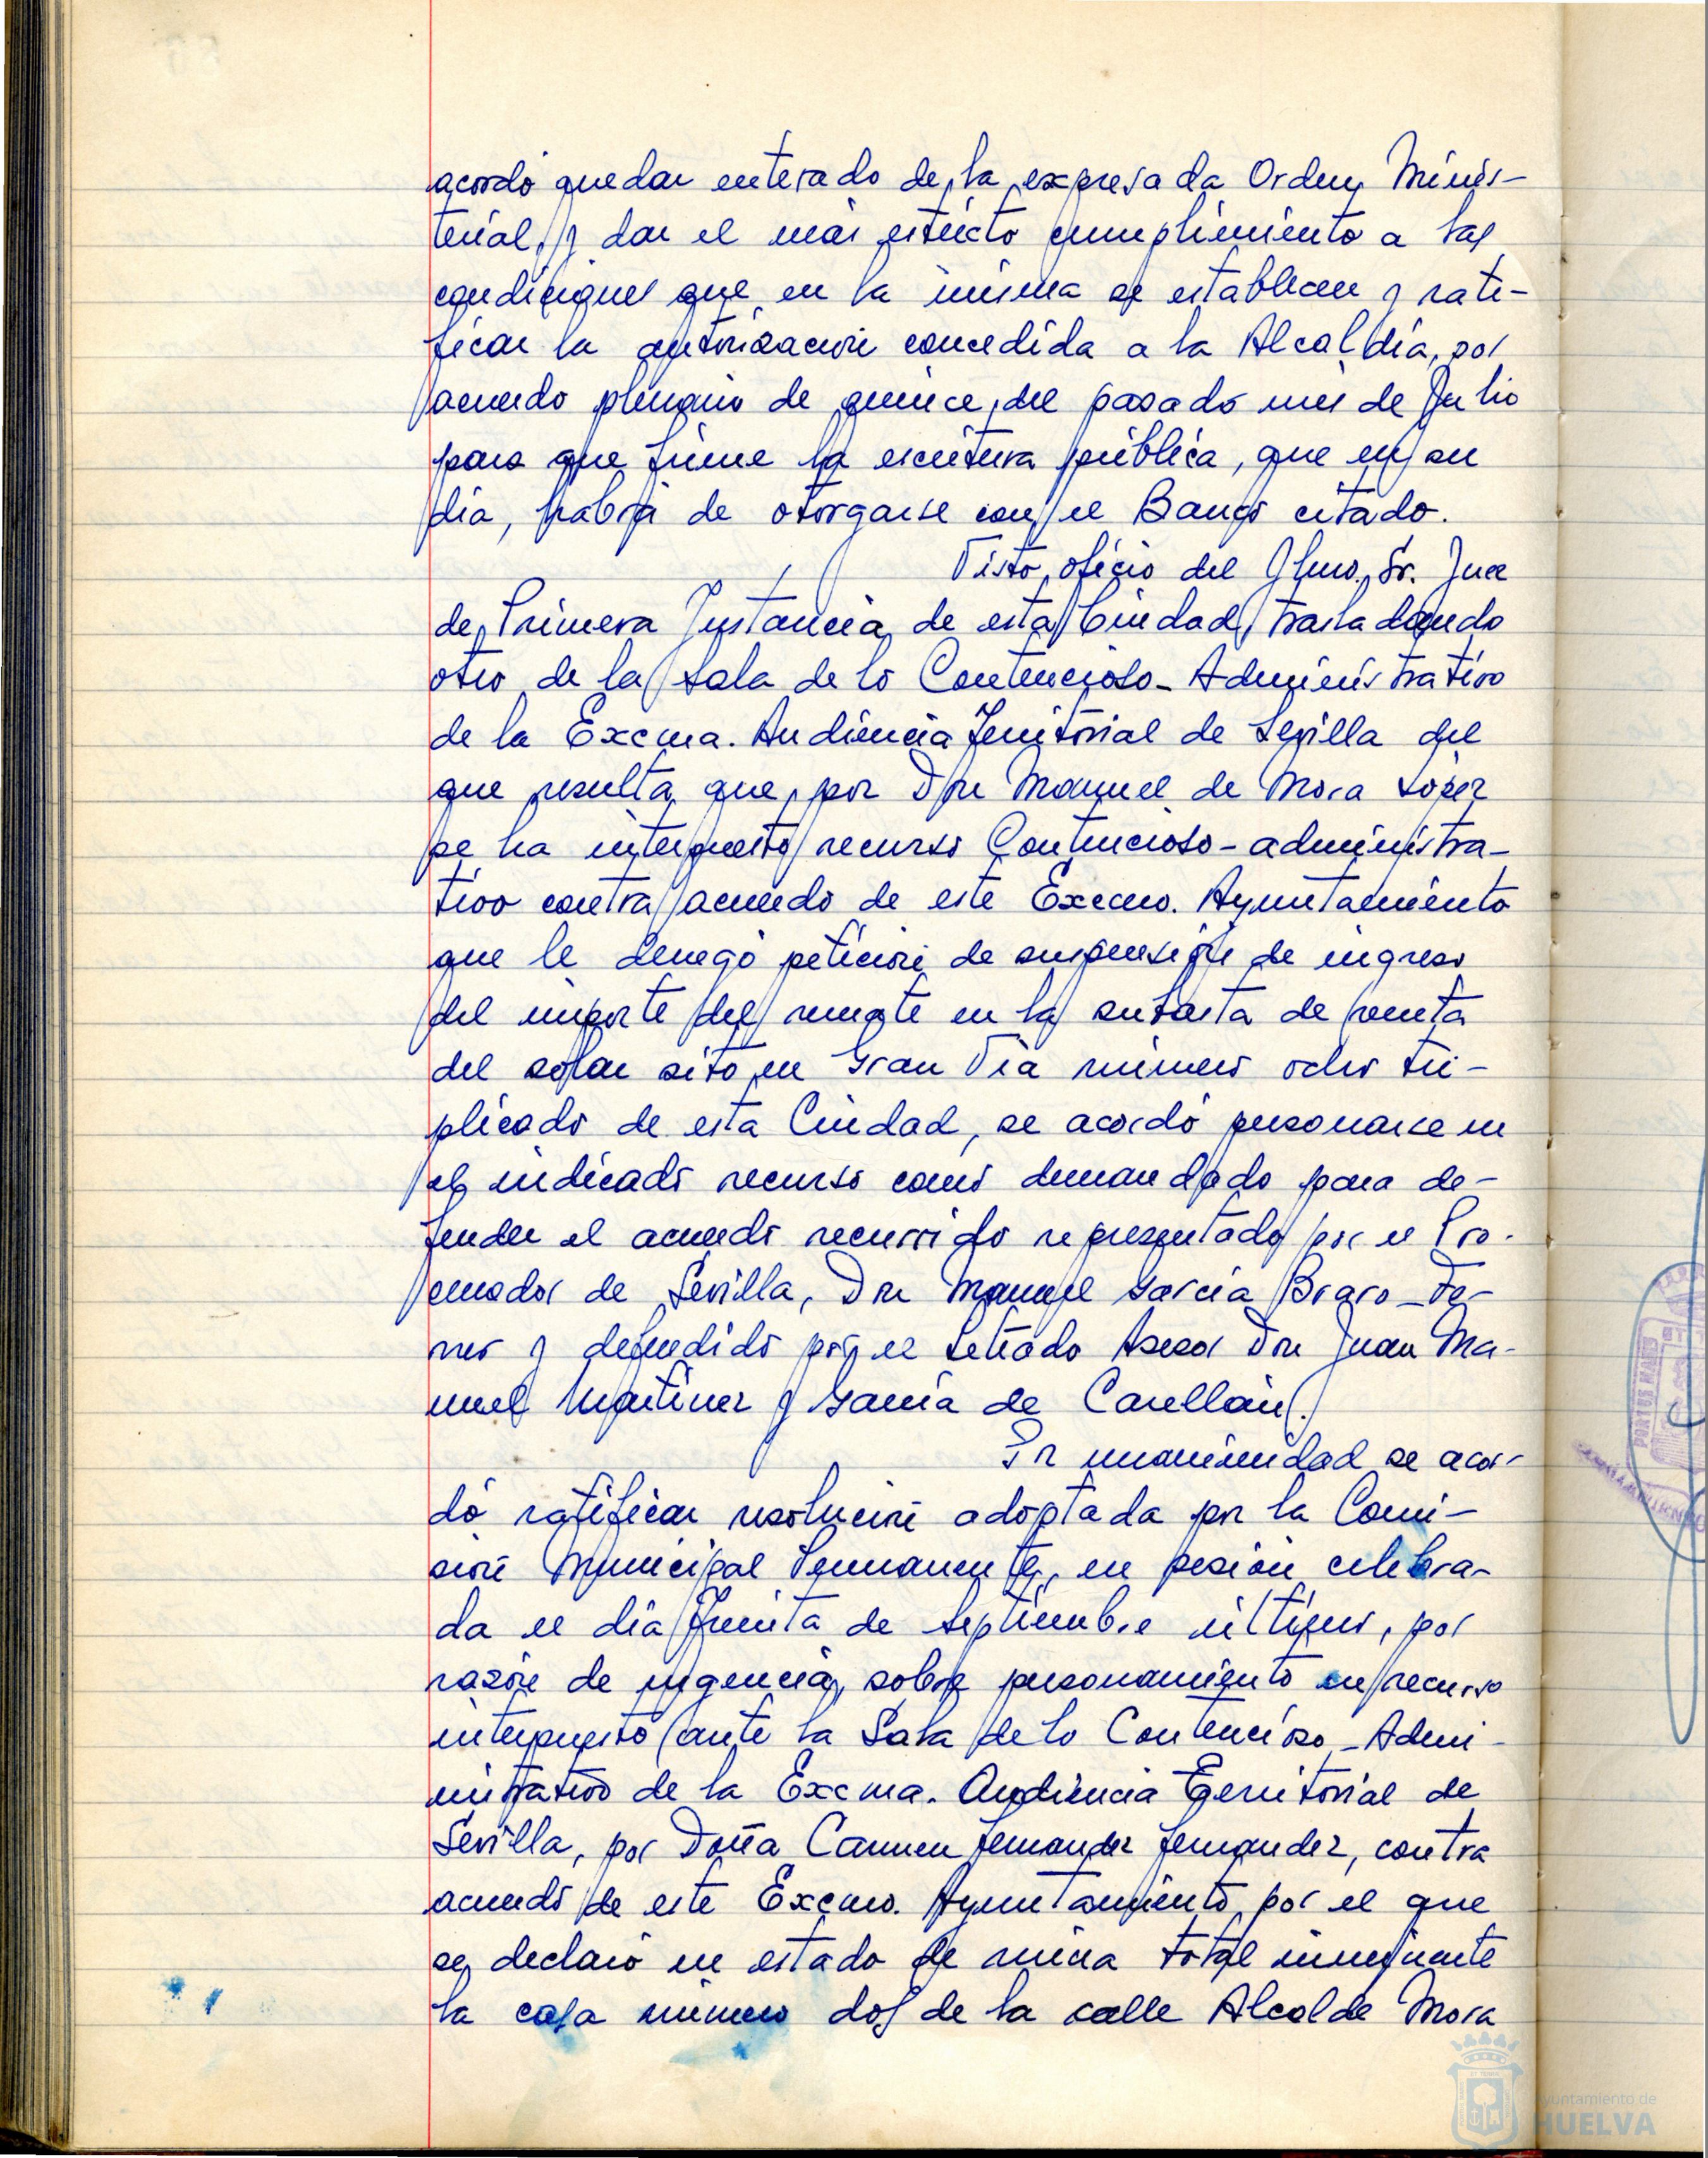 acordó quedar enterado de la expresada Orden Minis-
terial, y dar el más estricto cumplimiento a las
condiciones que en la misma se establecen y rati-
ficar la autorización concedida a la Alcaldía, por
acuerdo plenario de quince del pasado mes de Julio
para que firme la escritura pública, que en su
día, habrá de otorgarse con el Banco citado.
Visto oficio del Ilmo. Sr. Juez
de Primera Instancia de esta Ciudad, trasladando
otro de la Sala de lo Contencioso-Administrativo
de la Excma. Audiencia Territorial de Sevilla del
que resulta que por Don Manuel de Mora López
se ha interpuesto recurso Contencioso-administra-
tivo contra acuerdo de este Excmo. Ayuntamiento
que le denegó petición de suspensión de ingreso
del importe del remate en la subasta de venta
del solar sito en Gran Vía número ocho tri-
plicado de esta Ciudad, se acordó personarse en
el indicado recurso como demandado para de-
fender el acuerdo recurrido representado por el Pro-
curador de Sevilla, Don Manuel García Bravo-Fe-
rrer y defendido por el Letrado Asesor Don Juan Ma-
nuel Martínez y García de Casellán.
Por unanimidad se acor-
dó ratificar resolución adoptada por la Comi-
sión Municipal Permanente, en sesión celebra-
da el día treinta de septiembre último, por
razón de urgencia, sobre personamiento en recurso
interpuesto ante la Sala de lo Contencioso-Admi-
nistrativo de la Excma. Audiencia Territorial de
Sevilla, por Doña Carmen Fernandez Fernandez, contra
acuerdo de este Excmo. Ayuntamiento por el que
se declaró en estado de ruina total inminente
la casa número dos de la calle Alcalde Mora
PORTUS MARIS
Ayuntamiento de
HUELVA